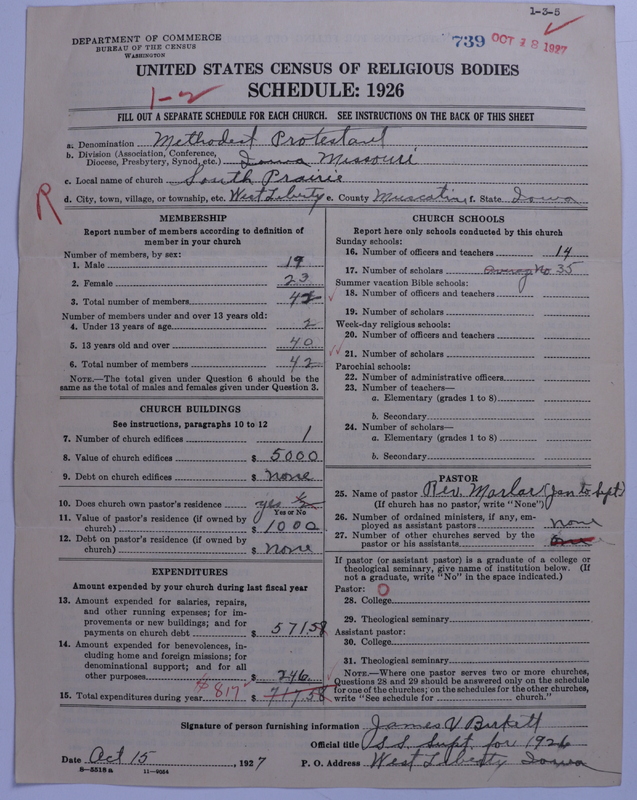 1-3-5
DEPARTMENT OF COMMERCE
BUREAU OF THE CENSUS
WASHINGTON
739 OCT 28 1927
UNITED STATES CENSUS OF RELIGIOUS BODIES
SCHEDULE: 1926
1-2
FILL OUT A SEPARATE SCHEDULE FOR EACH CHURCH. SEE INSTRUCTIONS ON THE BACK OF THIS SHEET
a. Denomination Methodest Protestant
b. Division (Association, Conference, Diocese, Presbytery, Synod, etc.) Iowa Missouri
c. Local name of church South Prairie
d. City, town, village, or township, etc. West Liberty e. County Muscatine f. State Iowa
R
MEMBERSHIP
Report number of members according to definition of
member in your church
Number of members, by sex:
1. Male 19
2. Female 23
3. Total number of members 42
Number of members under and over 13 years old:
4. Under 13 years of age 2
5. 13 years old and over 40
6. Total number of members 42
NOTE.—The total given under Question 6 should be the
same as the total of males and females given under Question 3.
CHURCH BUILDINGS
See instructions, paragraphs 10 to 12
7. Number of church edifices 1
8. Value of church edifices $ 5000
9. Debt on church edifices $ none
10. Does church own pastor's residence yes 1/2
Yes or No
11. Value of pastor's residence (if owned by
church) $ 1000
12. Debt on pastor's residence (if owned by
church) $ none
EXPENDITURES
Amount expended by your church during last fiscal year
13. Amount expended for salaries, repairs,
and other running expenses; for im-
provements or new buildings; and for
payments on church debt $ 571.58
14. Amount expended for benevolences, in-
cluding home and foreign missions; for
denominational support; and for all
other purposes $ 246.
15. Total expenditures during year $ 817 $ 717.58
CHURCH SCHOOLS
Report here only schools conducted by this church
Sunday schools:
16. Number of officers and teachers 14
17. Number of scholars Average No. 35
Summer vacation Bible schools:
18. Number of officers and teachers
19. Number of scholars
Week-day religious schools:
20. Number of officers and teachers
21. Number of scholars
Parochial schools:
22. Number of administrative officers
23. Number of teachers—
a. Elementary (grades 1 to 8)
b. Secondary
24. Number of scholars—
a. Elementary (grades 1 to 8)
b. Secondary
PASTOR
25. Name of pastor Rev. Marlar (Jan to Sept)
(If church has no pastor, write "None")
26. Number of ordained ministers, if any, em-
ployed as assistant pastors none
27. Number of other churches served by the
pastor or his assistants
If pastor (or assistant pastor) is a graduate of a college or
theological seminary, give name of institution below. (If
not a graduate, write "No" in the space indicated.)
Pastor: 0
28. College
29. Theological seminary
Assistant pastor:
30. College
31. Theological seminary
NOTE.—Where one pastor serves two or more churches,
Questions 28 and 29 should be answered only on the schedule
for one of the churches; on the schedules for the other churches,
write "See schedule for church."
Signature of person furnishing information James V Birkett
Official title S.S. Supt. fore 1926
Date Oct 15, 1927 P. O. Address West Liberty Iowa
8-5518a 11-9064